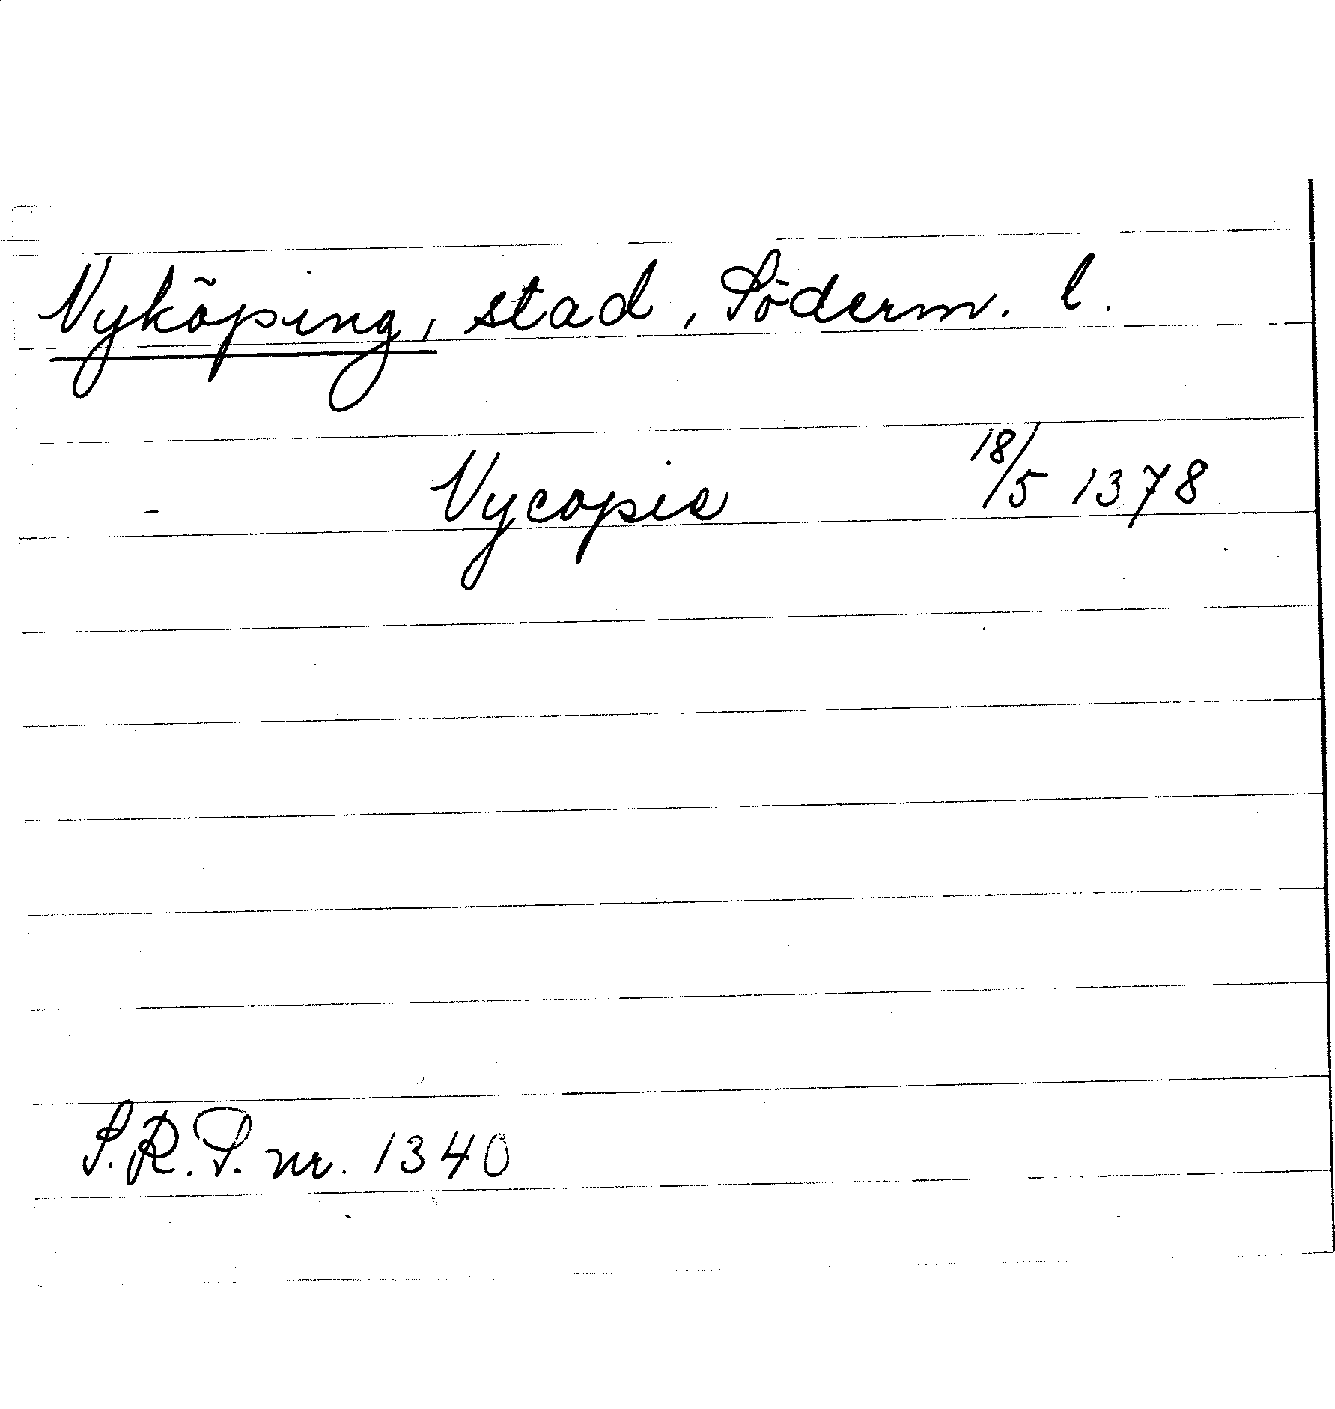 Nyköping, stad, Söderm. l.
Nycopie 18/5 1378
S.R.P. nr. 1340